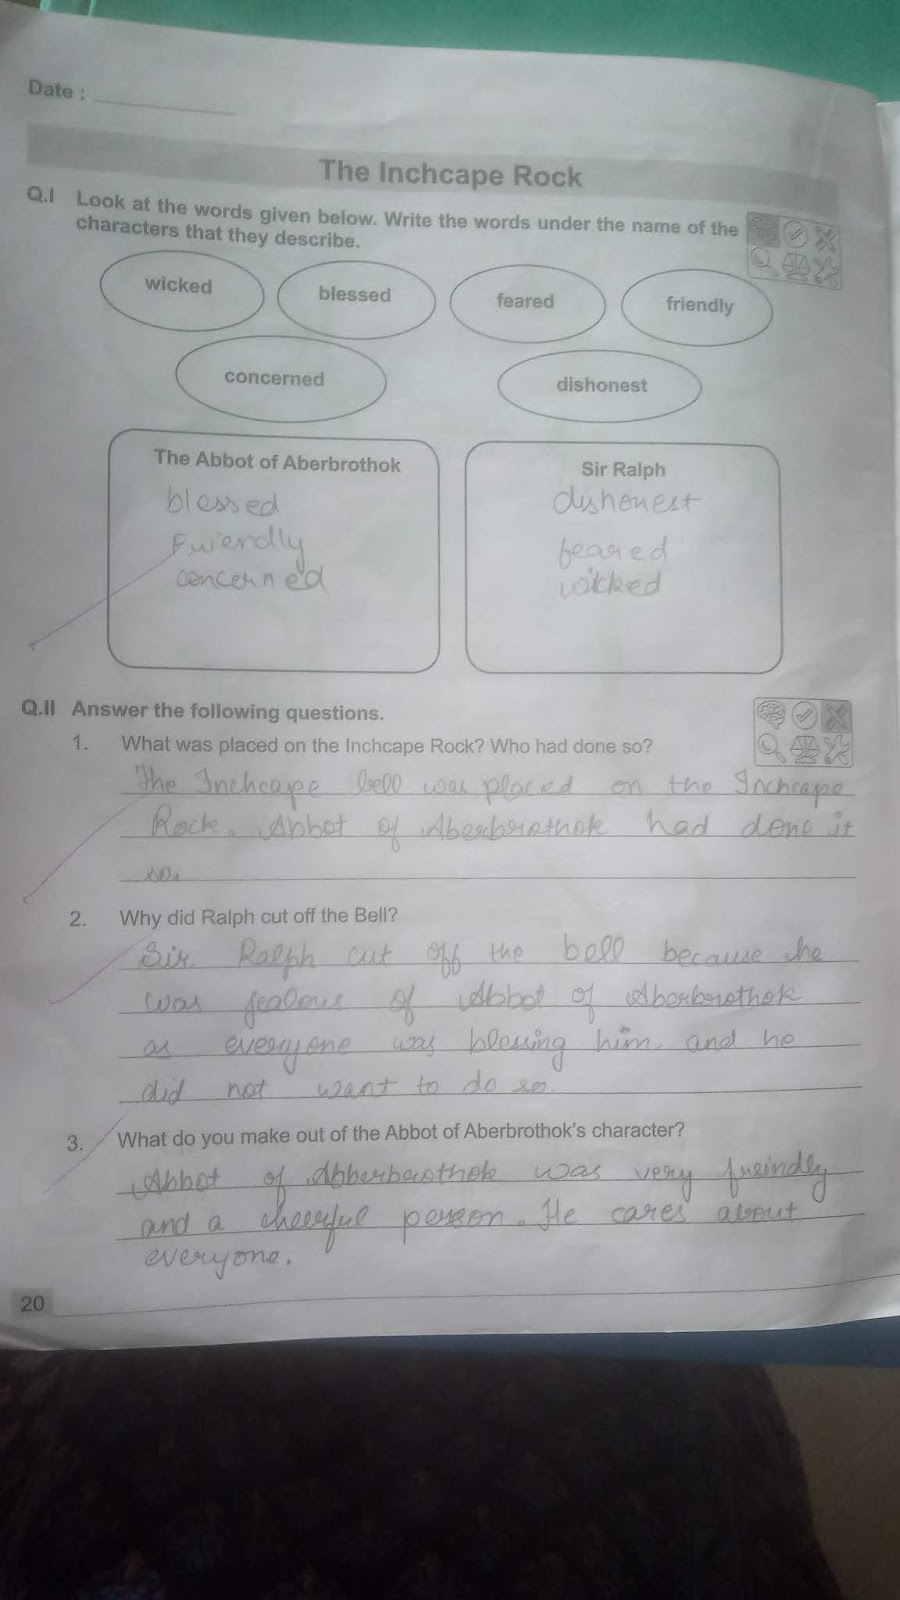 Date :
The Inchcape Rock
Q.I Look at the words given below. Write the words under the name of the
characters that they describe.
wicked
blessed
feared
friendly
concerned
dishonest
The Abbot of Aberbrothok
blessed
Friendly
concerned
Sir Ralph
dishonest
feared
wicked
Q.II Answer the following questions.
1. What was placed on the Inchcape Rock? Who had done so?
The Inchcape bell was placed on the Inchcape
Rock. Abbot of Aberbrothok had done it
so.
2. Why did Ralph cut off the Bell?
Sir. Ralph cut off the bell because he
was jealous of Abbot of Aberbrothok
as everyone was blessing him and he
did not want to do so.
3. What do you make out of the Abbot of Aberbrothok's character?
Abbot of Abberbrothok was very freindly
and a cheerful person. He cares about
everyone.
20